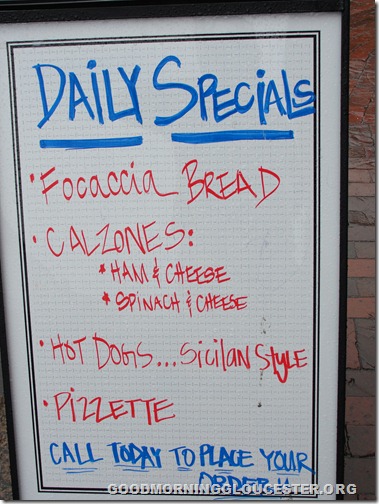 DAILY SPECIALS
• Focaccia BREAD
• CALZONES:
* HAM & CHEESE
* SPINACH & CHEESE
• HOT DOGS...Sicilan Style
• PIZZETTE
CALL TODAY TO PLACE YOUR
ORDER!!
GOODMORNINGGLOUCESTER.ORG